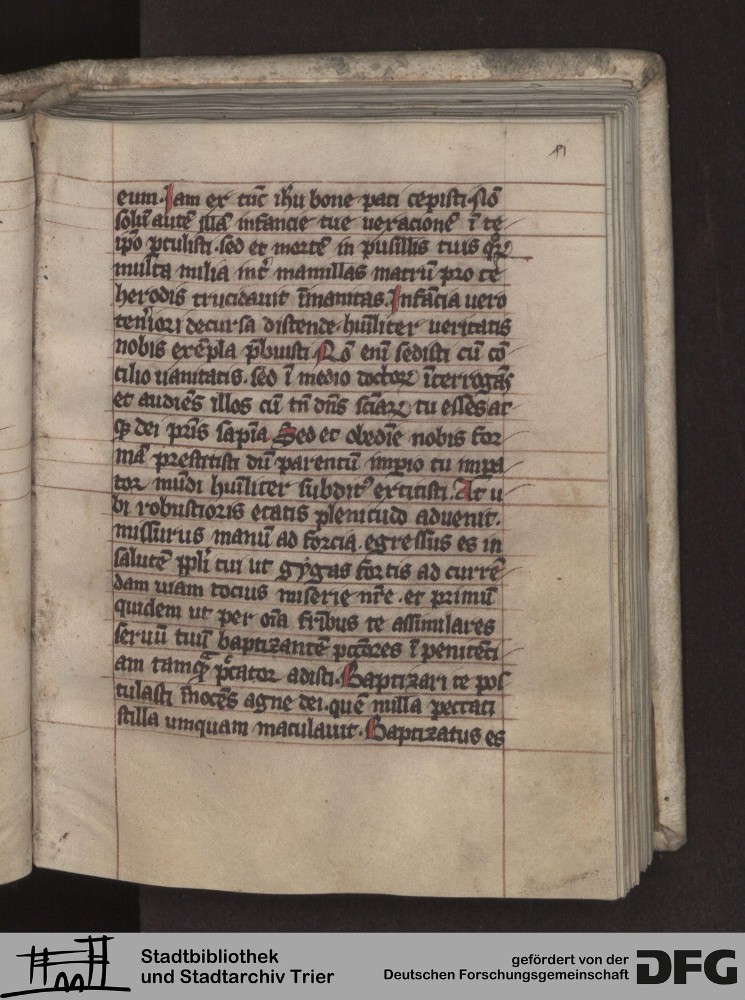 eum. Iam ex tūc ihū bone pati cepisti. Nō
solū autē illā infancie tue vexacionē ī te
ip̄o p̄tulisti. sed et mortē in pusillis tuis
multa milia int̄ mamillas matrū pro te
herodis trucidauit īmanitas. Infācia uero
decursa distende hūliter ueritatis
nobis exēpla p̄buisti Nō eni sedisti cū cō
cilio uanitatis. sed ī medio doctorꝝ īterrogās
et audiēs illos cū tn̄ dn̄s sciarꝝ tu esses at
qꝫ dei pr̄is sapīa Sed et obediē nobis for
mā prestitisti dū parentū impio tu impa
tor mūdi hūiliter subditꝰ extitisti. At u
bi robustioris etatis plenitudo aduenit.
missurus manū ad forcia. egressus es in
salutē ppl̄i tui ut gygas fortis ad currē
dam uiam tocius miserie nr̄e. et primū
quidem ut per oīa frībus te assimilares
seruū tuū baptizantē pctōres ī penitēti
am tamqꝫ pctator adisti. Baptizari te pos
tulasti īnocēs agne dei. quē nulla peccati
stilla umquam maculauit. Baptizatus es
Stadtbibliothek
und Stadtarchiv Trier
gefördert von der
Deutschen Forschungsgemeinschaft
DFG